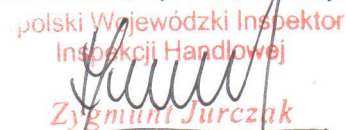 polski Wojewódzki Inspektor
Inspekcji Handlowej
Zygmunt Jurczak